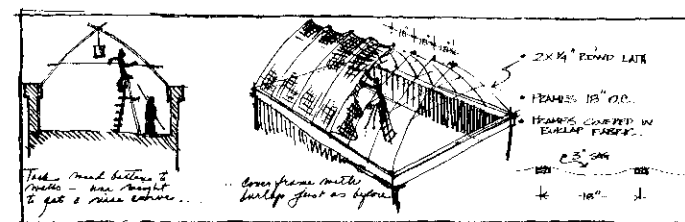 Tack wood battens to
walls - use weight
to get a nice curve...
.. cover frame with
burlap just as before
18" 18" 18"
• 2 x 1/4" BOUND LATH
• FRAMES 18" O.C.
• FRAMES COVERED IN
BURLAP FABRIC..
3" SAG
18"